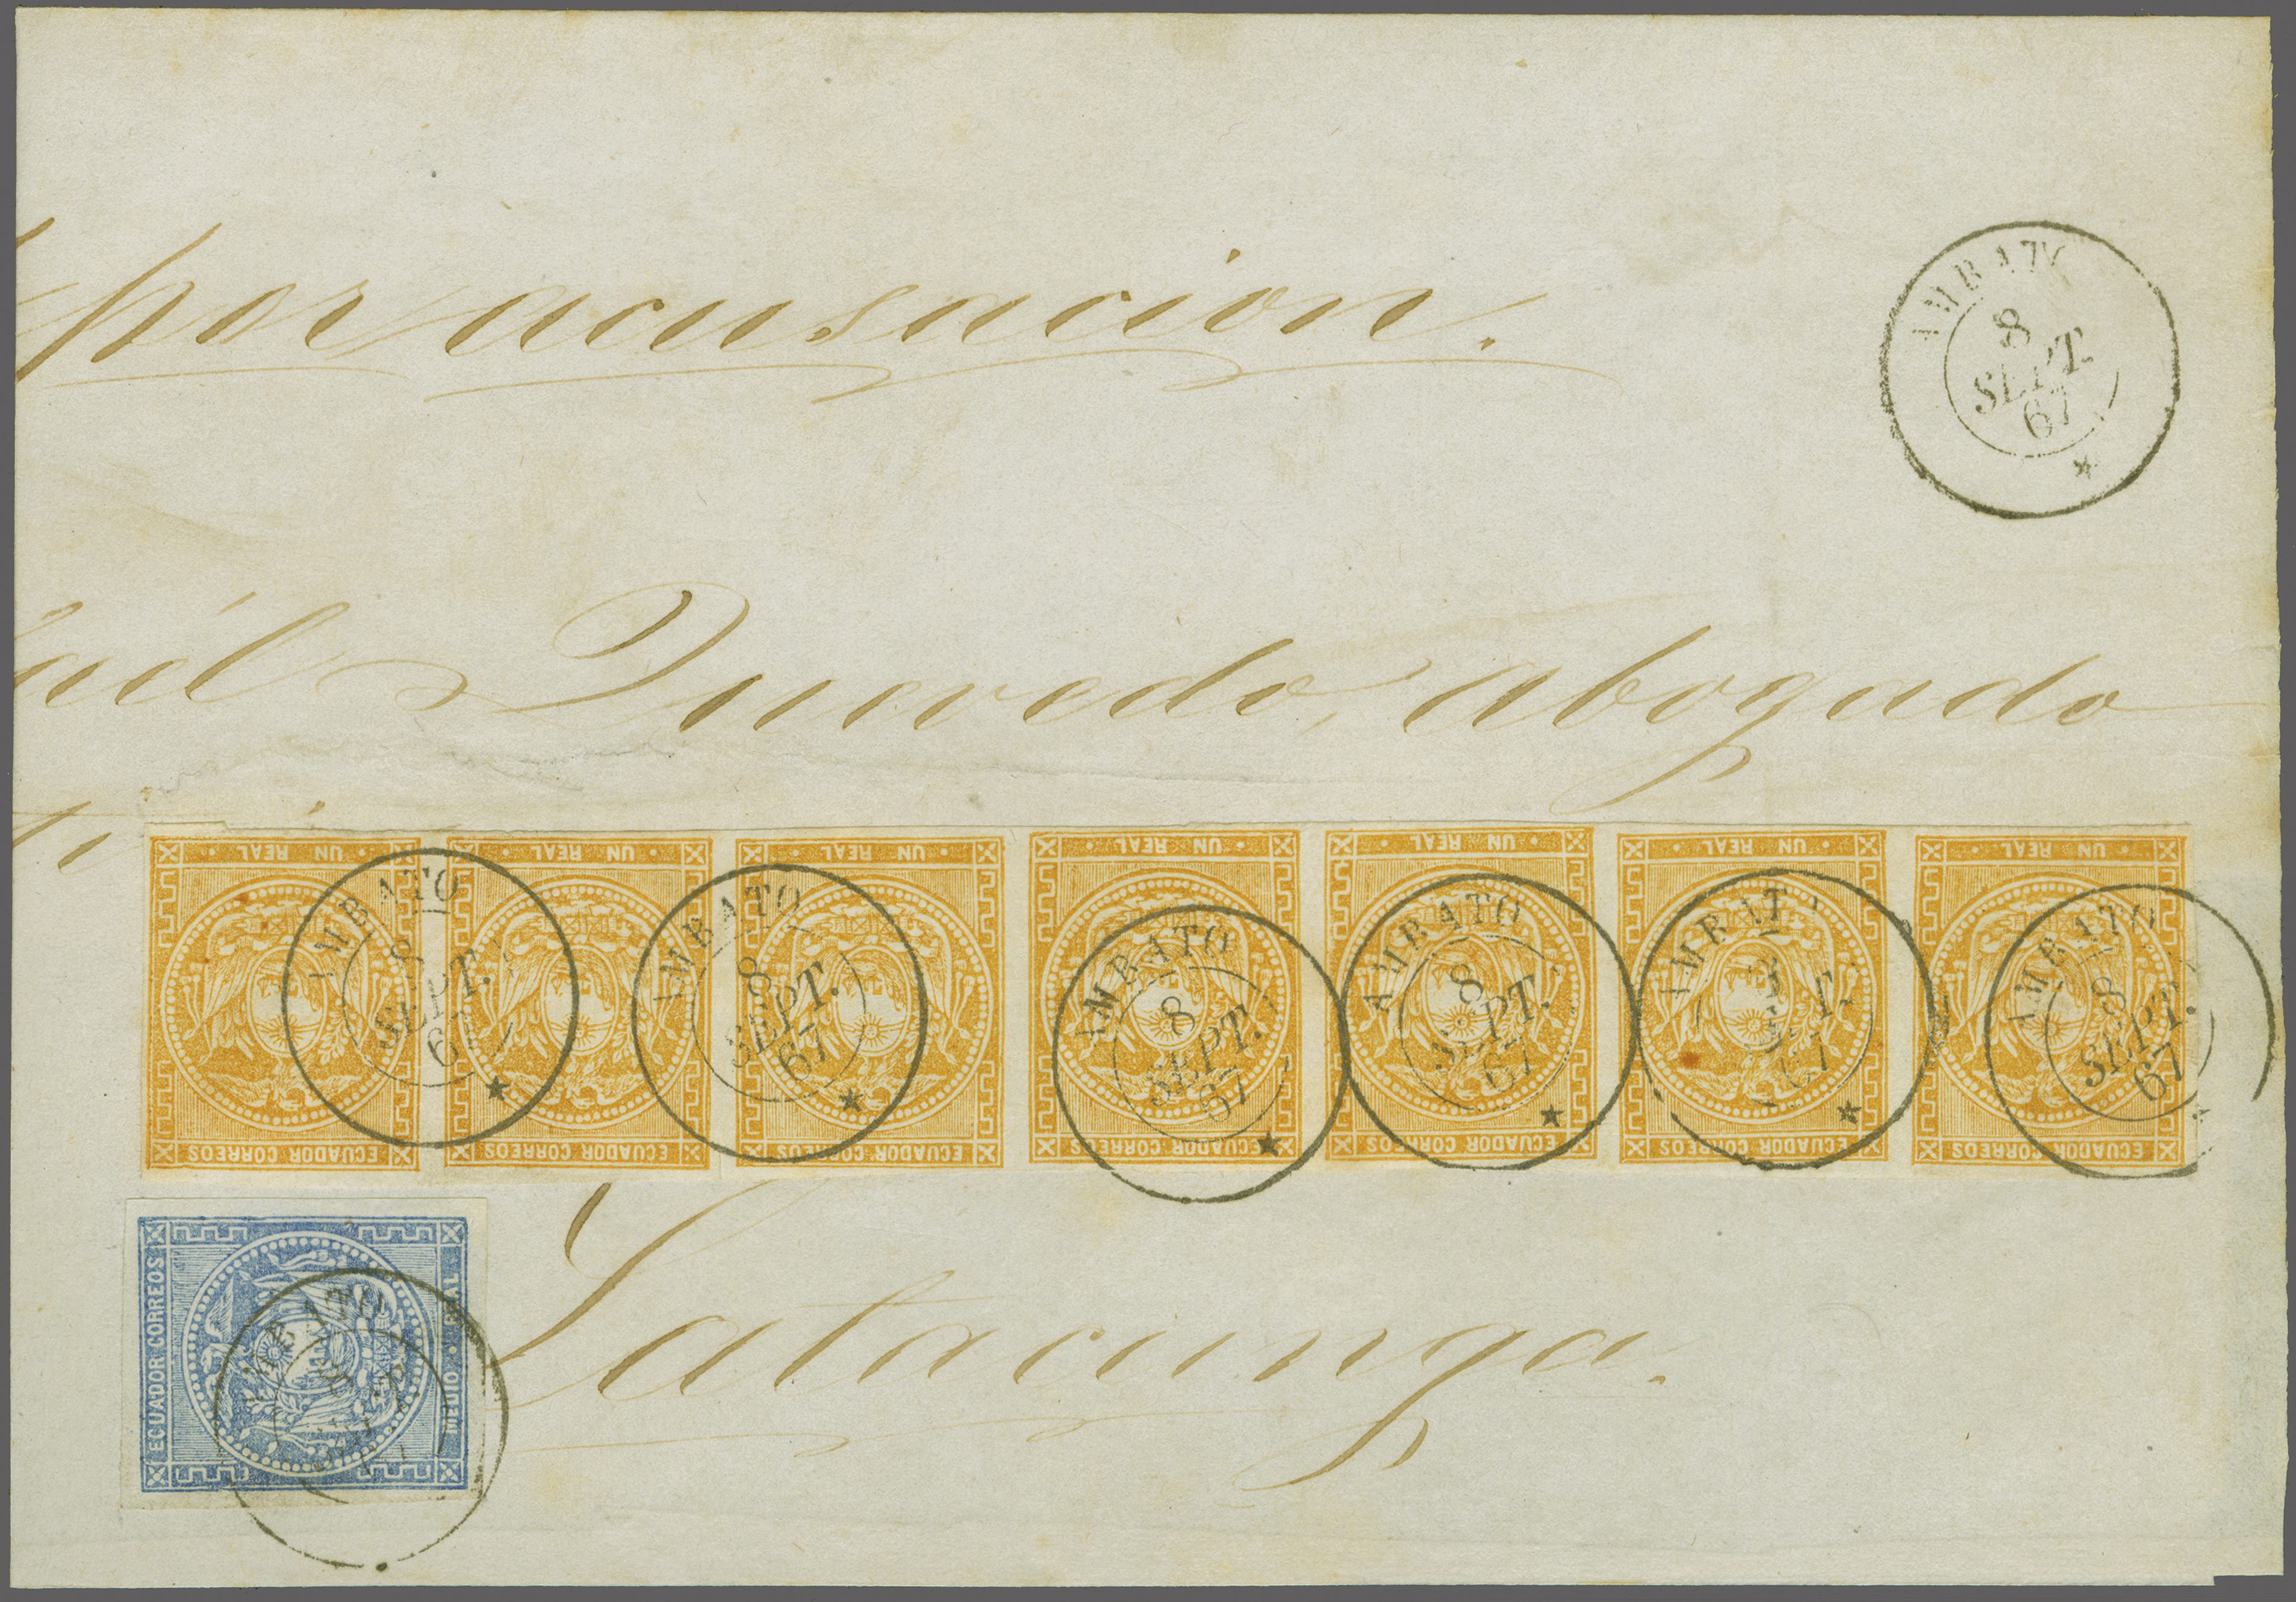 por acusacion.
AMBATO
8
SEPT.
67
ail Quevedo, abogado
UN REAL UN REAL UN REAL UN REAL UN REAL UN REAL UN REAL
AMBATO AMBATO AMBATO AMBATO AMBAT AMBATO
8 8 8 8 8 8
SEPT. SEPT. SEPT. SEPT. T. SEPT.
67 67 67 67 67 67
ECUADOR CORREOS ECUADOR CORREOS ECUADOR CORREOS ECUADOR CORREOS ECUADOR CORREOS ECUADOR CORREOS ECUADOR CORREOS
Latacunga.
ECUADOR CORREOS
MEDIO REAL